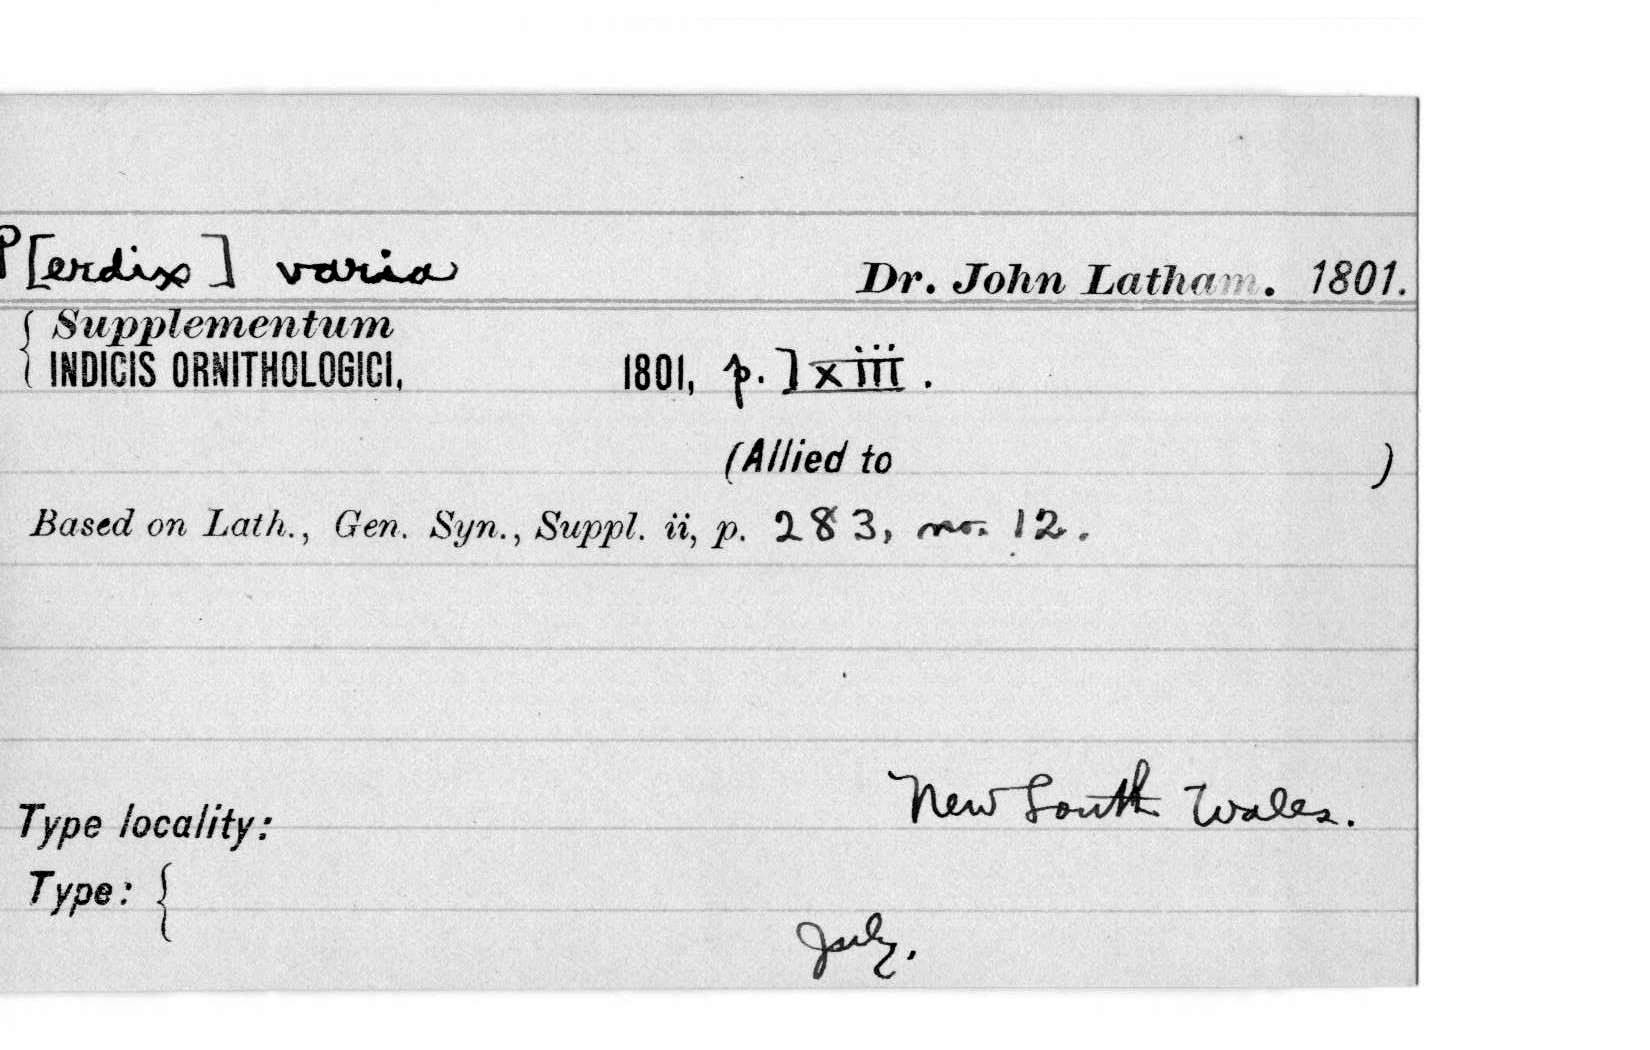 P[erdix] varia Dr. John Latham. 1801.
{ Supplementum
INDICIS ORNITHOLOGICI, 1801, p. lxiii.
(Allied to )
Based on Lath., Gen. Syn., Suppl. ii, p. 283, no. 12.
New South Wales.
Type locality:
Type: {
July.